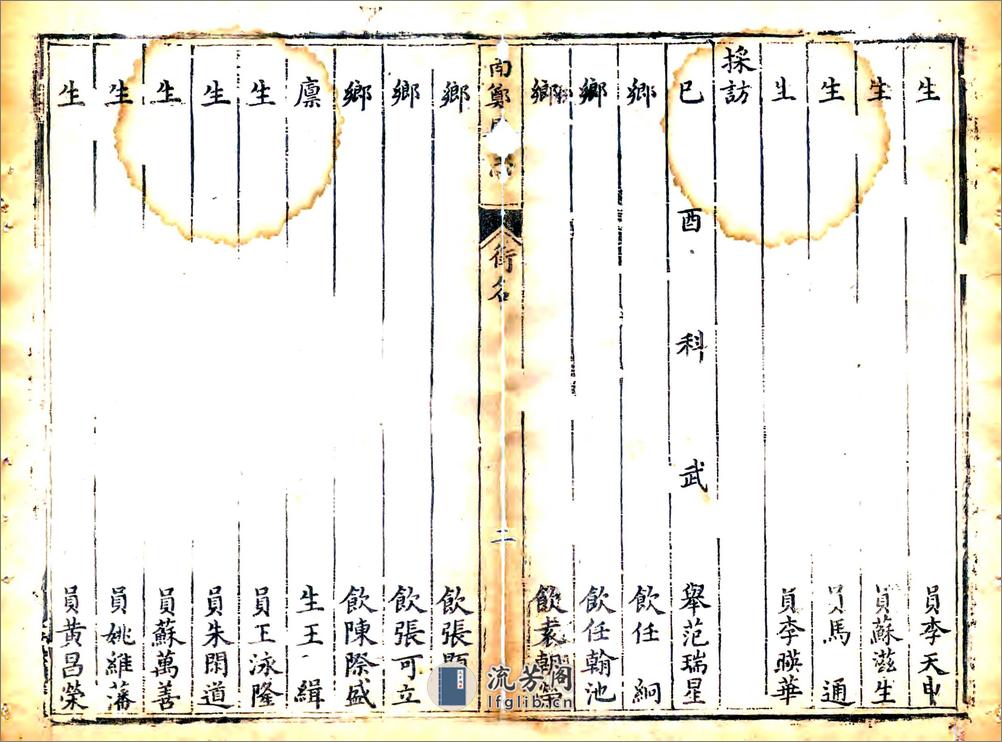 生員李天申
生員蘇滋生
生員馬通
生員李暎華
採訪
巳酉科武舉范瑞星
鄉飲任絅
鄉飲任翰池
鄉飲袁朝
南鄭
銜名
二
鄉飲張
鄉飲張可立
鄉飲陳際盛
廪生王緝
生員王泳隆
生員朱閑道
生員蘇萬善
生員姚維藩
生員黃昌榮
流芳閣
lfglib.cn